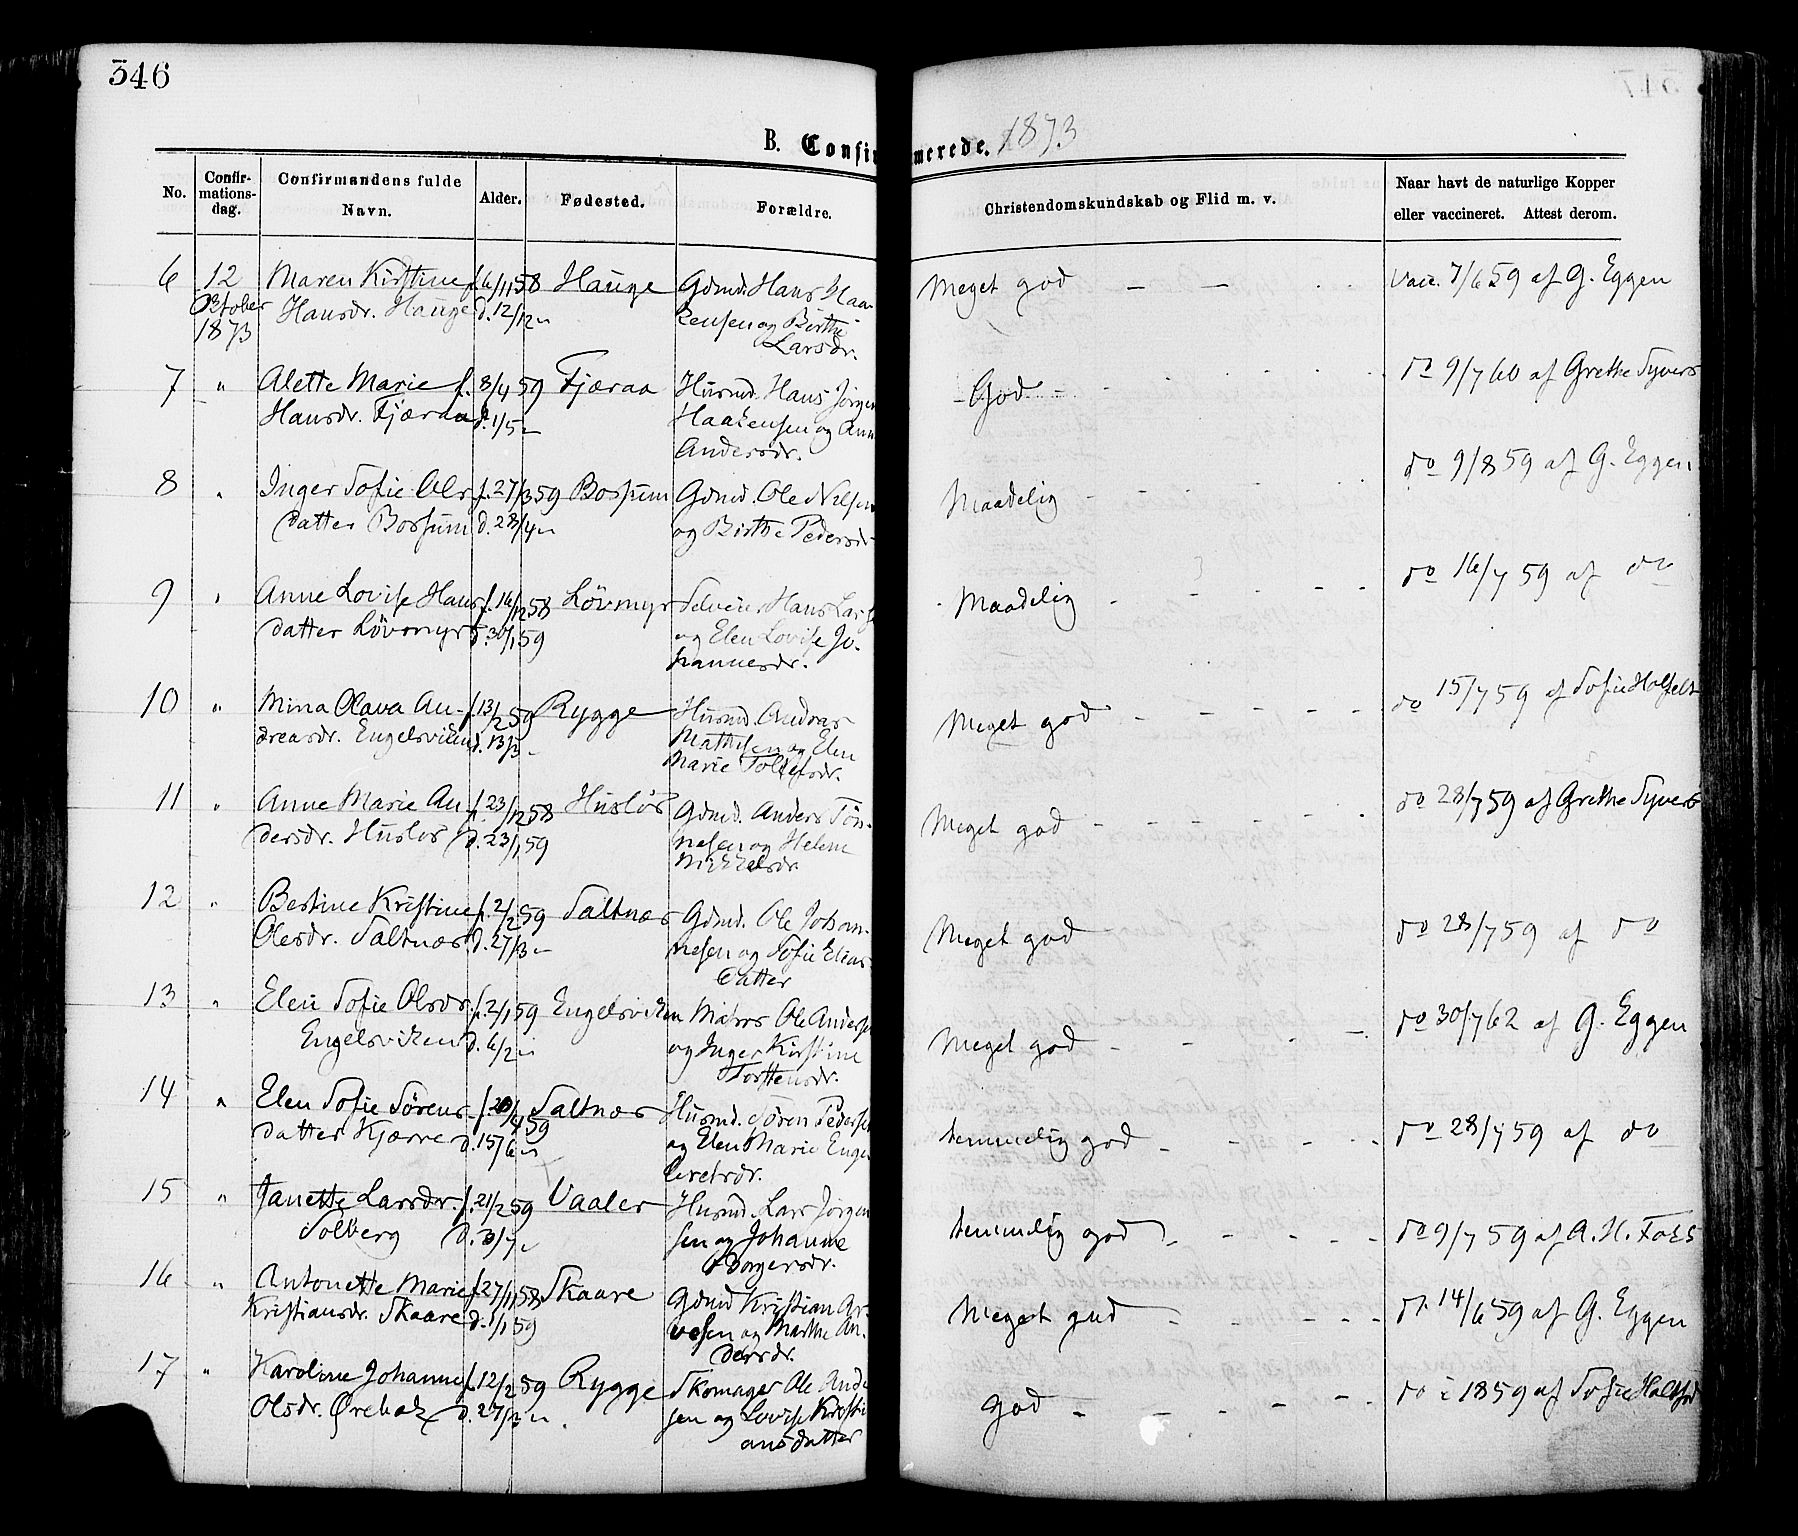 346
B. Confirmerede. 1873
No.
Confir-
mations-
dag.
Confirmandens fulde
Navn.
Alder.
Fødested.
Forældre.
Christendomskundskab og Flid m. v.
Naar havt de naturlige Kopper
eller vaccineret. Attest derom.
6 12 Maren Kirstine f. 6/11 58 Hauge Gdmd. Hans Haa- Meget god — — Vacc. 7/6 59 af G. Eggen
Oktober Hansdr. Hauge d. 12/12 " kensen og Birthe
1873 Larsdr.
7 " Alette Marie f. 8/4 59 Fjæraa Husmd. Hans Jørgen God do 9/7 60 af Grethe Syvers
Hansdr. Fjæraa d. 1/5 " Haakensen og Ann
Andersdr.
8 " Inger Sofie Ols- f. 27/3 59 Bossum Gdmd. Ole Nilsen Maadelig do 9/8 59 af G. Eggen
datter Bossum d. 28/4 " og Birthe Pedersdr
9 " Anne Lovise Hans- f. 16/12 58 Lövmyr Hans Lars Maadelig do 16/7 59 af do
datter Lövmyr d. 30/1 59 og Elen Lovise Jo-
hannesdr.
10 " Mina Olava An- f. 13/2 59 Rygge Husmd. Andreas Meget god do 15/7 59 af Sofie Holtfelt
dreasdr. Engelsviken d. 13/3 " Mathisen og Elen
Marie Tollefsdr.
11 " Anne Marie An- f. 23/12 58 Huslös Gdmd. Anders Tön- Meget god do 28/7 59 af Grethe Syvers
dersdr. Huslos d. 23/1 59 nesen og Helene
Mikkelsdr.
12 " Bertine Kristine f. 2/2 59 Saltnæs Gdmd. Ole Johan- Meget god do 28/7 59 af do
Olesdr. Saltnæs d. 27/3 " nesen og Sofie Elias-
datter
13 " Elen Sofie Olsdr. f. 2/1 59 Engelsviken Matros Ole Anders Meget god do 30/7 62 af G. Eggen
Engelsviken d. 6/2 " og Inger Kirstine
Torstensdr.
14 " Elen Sofie Sörens- f. 20/4 59 Saltnæs Husmd. Sören Peders temmelig god do 28/7 59 af do
datter Kjærre d. 15/6 " og Elen Marie Enge-
bretsdr.
15 " Janette Larsdr. f. 21/2 59 Vaaler Husmd. Lars Jörgen temmelig god do 9/7 59 af A. H. Foks
Solberg d. 3/7 " sen og Johanne
Borgersdr.
16 " Antonette Marie f. 27/11 58 Skaare Gdmd Kristian Ar- Meget god do 14/6 59 af G. Eggen
Kristiansdr. Skaare d. 1/1 59 vesen og Marthe An-
dersdr.
17 " Karoline Johanne f. 12/2 59 Rygge Skomager Ole Ande God do i 1859 af Sofie Holtfed
Olsdr. Ørebak d. 27/3 " sen og Lovise Kristi
ansdatter